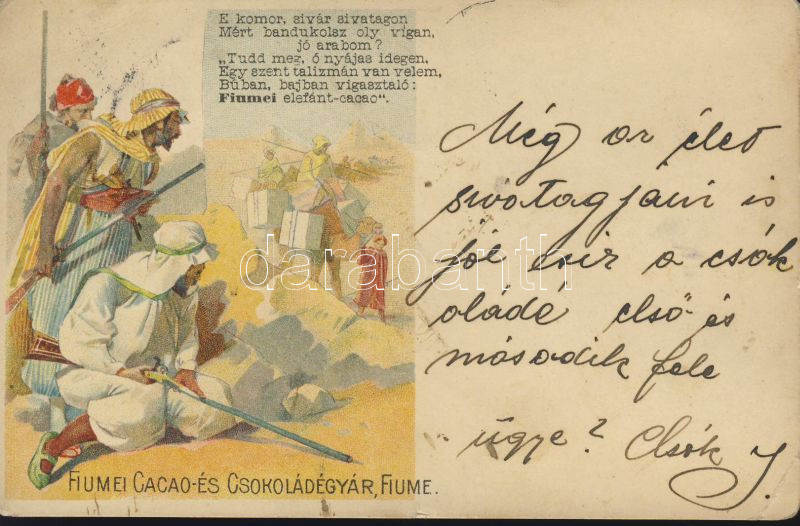 E komor, sivár sivatagon
Mért bandukolsz oly vígan,
jó arabom?
„Tudd meg, ó nyájas idegen,
Egy szent talizmán van velem,
Búban, bajban vigasztaló:
Fiumei elefánt-cacao“.
Még az élet
sivatagjain is
jól esik a csók
oládé első és
második fele
ügye? Csók J.
darabanth
FIUMEI CACAO-ÉS CSOKOLÁDÉGYÁR, FIUME.